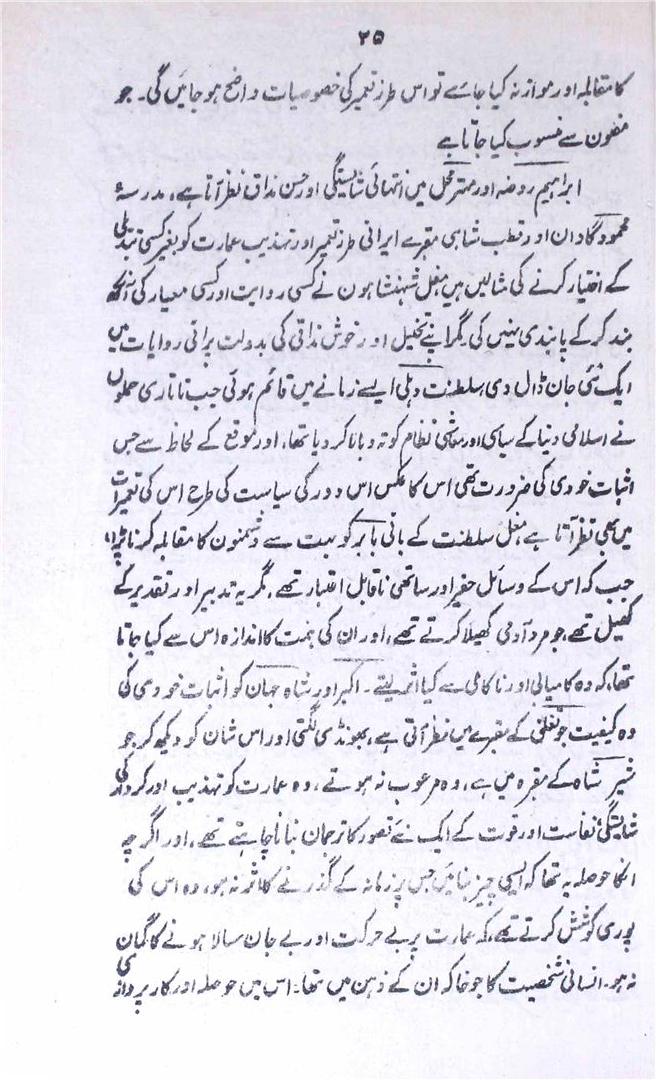 ۲۵
کا مقابلہ اور موازنہ کیا جائے تو اس طرز تعمیر کی خصوصیات واضح ہو جائیں گی۔ جو
مغلوں سے منسوب کیا جاتا ہے
ابراہیم روضہ اور مہتر محل میں انتہائی شایستگی اور حسن مذاق نظر آتا ہے، مدرسۂ
محمود گاوان اور قطب شاہی مقبرے ایرانی طرز تعمیر اور تہذیب عمارت کو بغیر کسی تبدیلی
کے اختیار کرنے کی مثالیں ہیں مغل شہنشاہوں نے کسی روایت اور کسی معیار کی آنکھ
بند کر کے پابندی نہیں کی۔ مگر اپنے تخیل اور خوش مذاقی کی بدولت پرانی روایات میں
ایک نئی جان ڈال دی سلطنت دہلی ایسے زمانے میں قائم ہوئی جب تاتاری حملوں
نے اسلامی دنیا کے سیاسی اور معاشی نظام کو تہ و بالا کر دیا تھا، اور موقع کے لحاظ سے جس
اثبات خودی کی ضرورت تھی اس کا عکس اس دور کی سیاست کی طرح اس کی تعمیرات
میں بھی نظر آتا ہے، مغل سلطنت کے بانی بابر کو بہت سے دشمنوں کا مقابلہ کرنا پڑا،
جب کہ اس کے وسائل حقیر اور ساتھی ناقابل اعتبار تھے۔ مگر یہ تدبیر اور تقدیر کے
کھیل تھے، جو مرد آدمی کھیلا کرتے تھے، اور ان کی ہمت کا اندازہ اس سے کیا جاتا
تھا، کہ وہ کامیابی اور ناکامی سے کیا اثر لیتے۔ اکبر اور شاہ جہان کو اثبات خودی کی
وہ کیفیت جو تغلق کے مقبرے میں نظر آتی ہے، بھونڈی لگتی اور اس شان کو دیکھ کر جو
شیر شاہ کے مقبرہ میں ہے، وہ مرعوب نہ ہوتے، وہ عمارت کو تہذیب اور کردار کی
شایستگی نفاست اور قوت کے ایک نئے تصور کا ترجمان بنانا چاہتے تھے، اور اگرچہ
انکا حوصلہ یہ تھا کہ ایسی چیز بنائیں جس پر زمانہ کے گذرنے کا اثر نہ ہو، وہ اس کی
پوری کوشش کرتے تھے، کہ عمارت پر بے حرکت اور بے جان سالا ہونے کا گمان
نہ ہو۔ انسانی شخصیت کا جو خاکہ ان کے ذہن میں تھا۔ اس میں حوصلہ اور کار پردازی